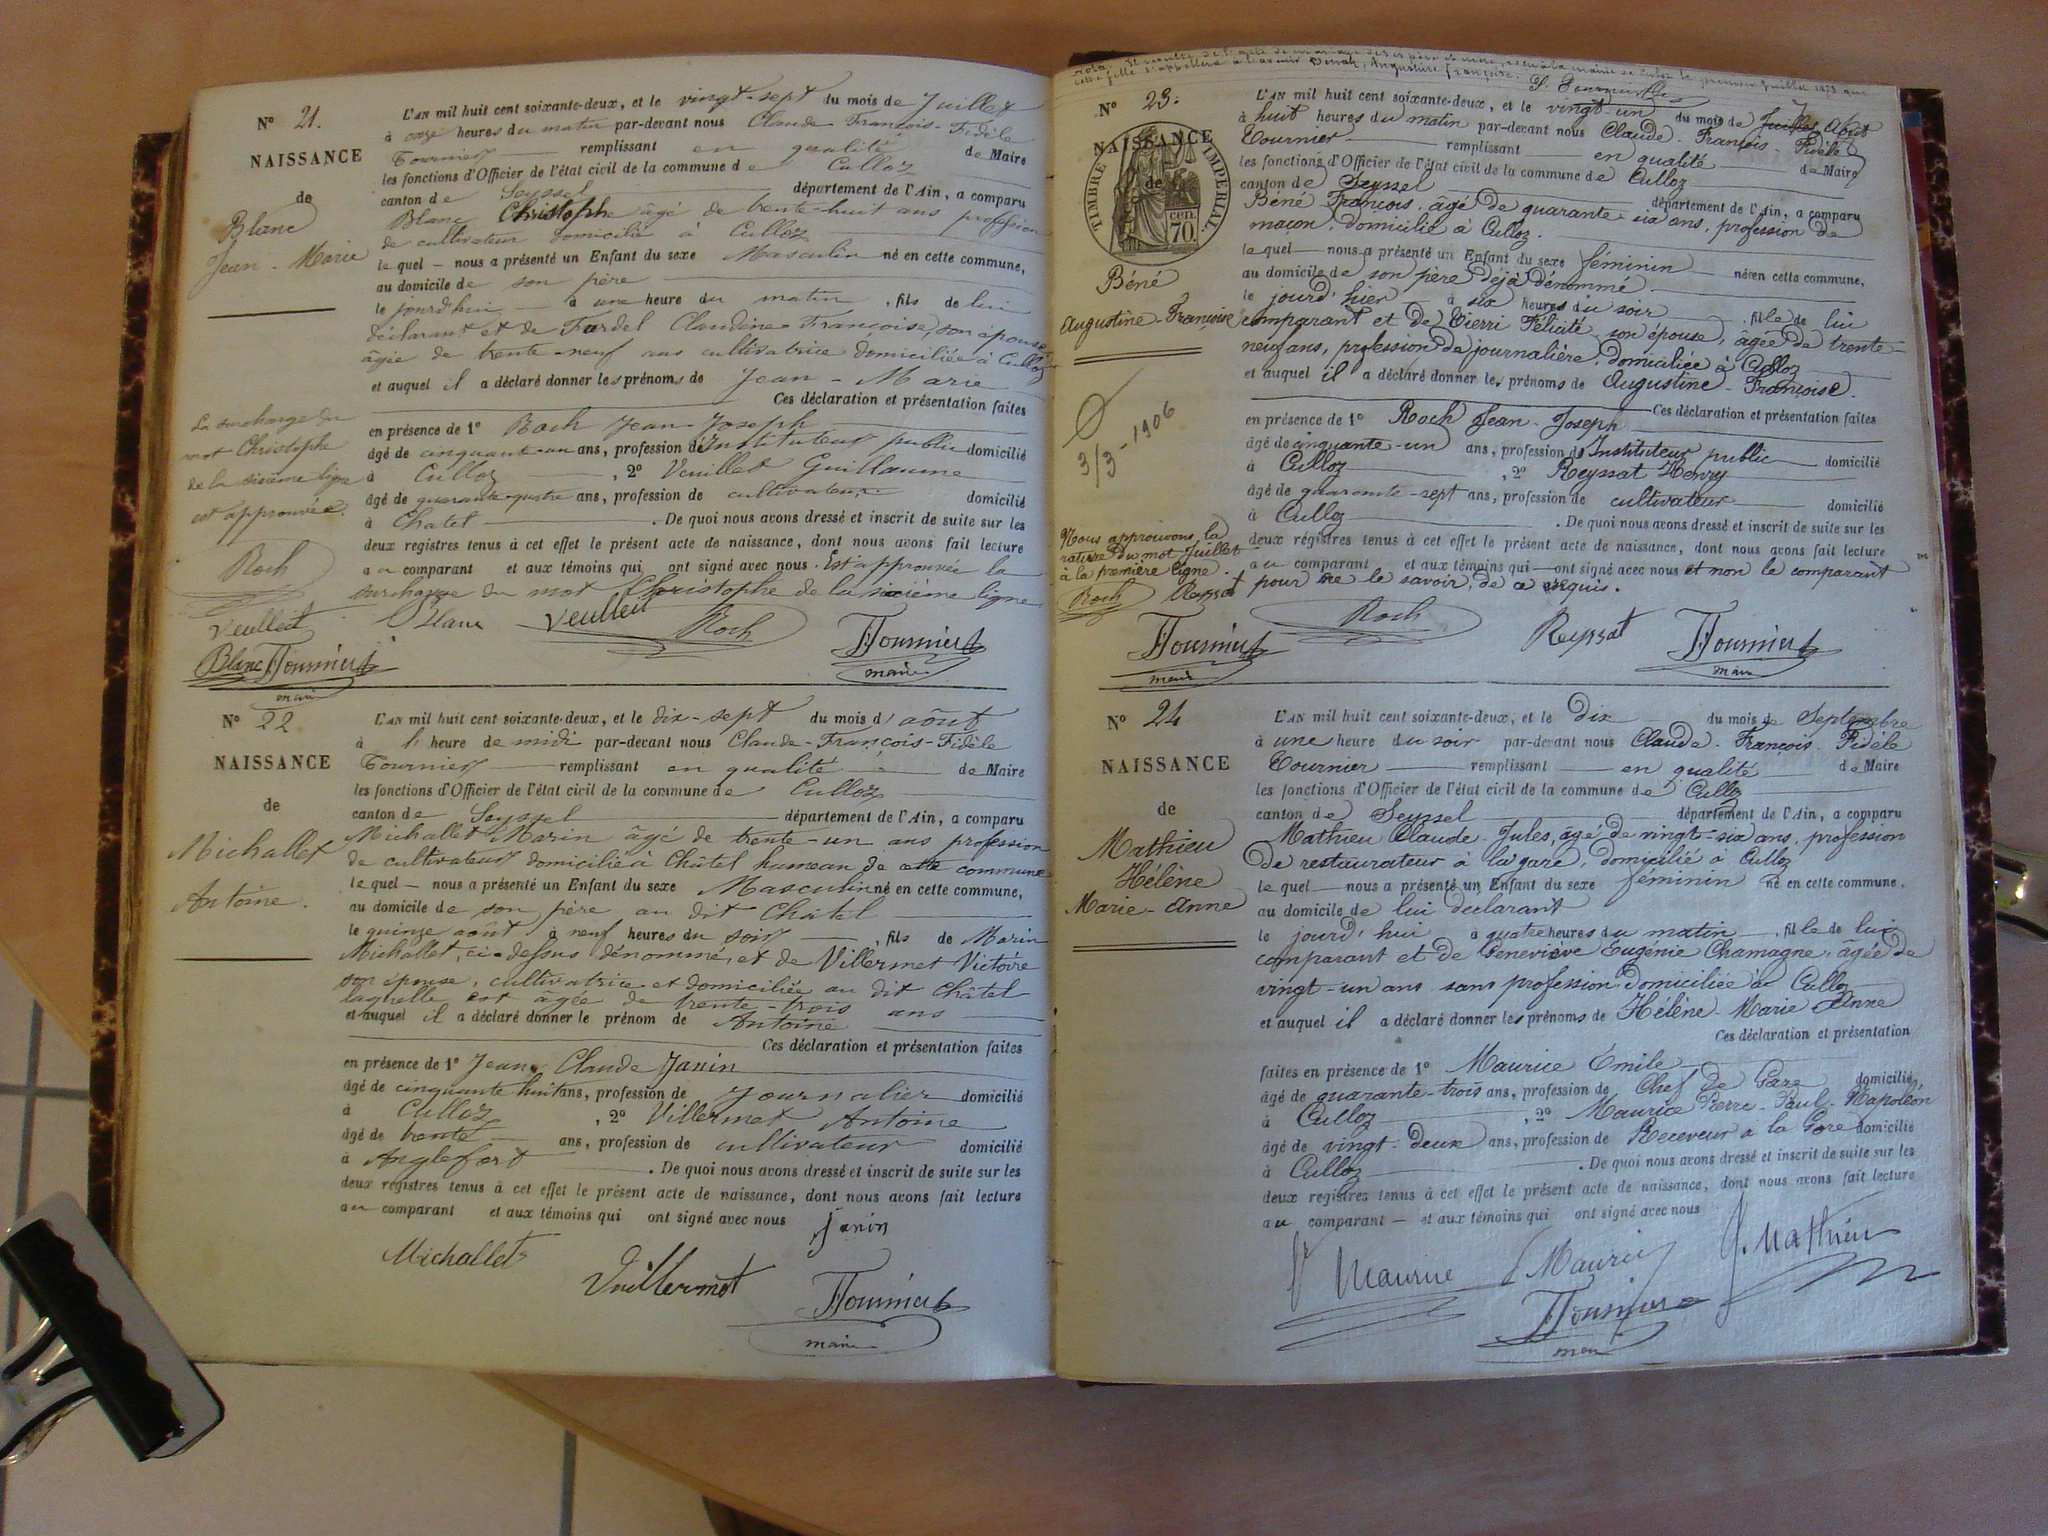 N° 21.
NAISSANCE
de
Blanc
Jean-Marie
L'AN mil huit cent soixante-deux, et le vingt-sept du mois de Juillet
à onze heures du matin par-devant nous Claude François-Fidèle
Tournier remplissant en qualité de Maire
les fonctions d'Officier de l'état civil de la commune de Culloz
canton de Seyssel département de l'Ain, a comparu
Blanc Christophe âgé de trente-huit ans profession
de cultivateur domicilié à Culloz
lequel nous a présenté un Enfant du sexe Masculin né en cette commune,
au domicile de son père
le jourd'hui à une heure du matin, fils de lui
déclarant et de Fardel Claudine Françoise, son épouse
âgée de trente-neuf ans cultivatrice domiciliée à Culloz
et auquel il a déclaré donner les prénoms de Jean-Marie
Ces déclaration et présentation faites
en présence de 1° Roch Jean-Joseph
âgé de cinquante-un ans, profession d'Instituteur public domicilié
à Culloz, 2° Veuillet Guillaume
âgé de quarante-quatre ans, profession de cultivateur domicilié
à Chatel. De quoi nous avons dressé et inscrit de suite sur les
deux registres tenus à cet effet le présent acte de naissance, dont nous avons fait lecture
au comparant et aux témoins qui ont signé avec nous. Est approuvée la
surcharge du mot Christophe de la sixième ligne
La surcharge du
mot Christophe
de la sixième ligne
est approuvée.
Roch
Veuilleit
Blanc Tournier
maire
Blanc Veuilleit Roch Tournier
maire
N° 22
NAISSANCE
de
Michallet
Antoine.
L'AN mil huit cent soixante-deux, et le dix-sept du mois d'août
à l'heure de midi par-devant nous Claude-François-Fidèle
Tournier remplissant en qualité de Maire
les fonctions d'Officier de l'état civil de la commune de Culloz
canton de Seyssel département de l'Ain, a comparu
Michallet Marin âgé de trente-un ans profession
de cultivateur domicilié à Châtel hameau de cette commune
lequel nous a présenté un Enfant du sexe Masculin né en cette commune,
au domicile de son père au dit Châtel
le quinze août à neuf heures du soir, fils de Marin
Michallet, ci-dessus dénommé, et de Villermet Victoire
son épouse, cultivatrice et domiciliée au dit Châtel
laquelle est âgée de trente-trois ans
et auquel il a déclaré donner le prénom de Antoine
Ces déclaration et présentation faites
en présence de 1° Jean-Claude Janin
âgé de cinquante huit ans, profession de Journalier domicilié
à Culloz, 2° Villermet Antoine
âgé de trente ans, profession de cultivateur domicilié
à Anglefort. De quoi nous avons dressé et inscrit de suite sur les
deux registres tenus à cet effet le présent acte de naissance, dont nous avons fait lecture
au comparant et aux témoins qui ont signé avec nous Janin
Michallet
Vuillermet Tournier
maire
nota. Il résulte de l'acte de mariage de ses père et mère, à la mairie de Culoz le premier Juillet 1873 que
cette fille s'appellera à l'avenir Augustine Françoise.
N° 23.
NAISSANCE
de
TIMBRE IMPERIAL
70 cen.
Béné
Augustine-Françoise
L'AN mil huit cent soixante-deux, et le vingt-un du mois de Juillet Août
à huit heures du matin par-devant nous Claude-François-Fidèle
Tournier remplissant en qualité de Maire
les fonctions d'Officier de l'état civil de la commune de Culloz
canton de Seyssel département de l'Ain, a comparu
Béné François, âgé de quarante-six ans, profession de
maçon, domicilié à Culloz.
lequel nous a présenté un Enfant du sexe féminin né en cette commune,
au domicile de son père déjà dénommé
le jourd'hier à six heures du soir, fille de lui
comparant et de Vierri Félicité, son épouse, âgée de trente-
neuf ans, profession de journalière, domiciliée à Culloz
et auquel il a déclaré donner les prénoms de Augustine-Françoise.
Ces déclaration et présentation faites
en présence de 1° Roch Jean-Joseph
âgé de cinquante-un ans, profession d'Instituteur public domicilié
à Culloz, 2° Reyssat Henry
âgé de quarante-sept ans, profession de cultivateur domicilié
à Culloz. De quoi nous avons dressé et inscrit de suite sur les
deux régistres tenus à cet effet le présent acte de naissance, dont nous avons fait lecture
au comparant et aux témoins qui ont signé avec nous et non le comparant
pour ne le savoir, de ce requis.
3/3-1906
Nous approuvons la
rature du mot Juillet
à la première ligne.
Roch Reyssat
Tournier
maire
Roch Reyssat Tournier
maire
N° 24
NAISSANCE
de
Mathieu
Hélène
Marie-Anne
L'AN mil huit cent soixante-deux, et le Dix du mois de Septembre
à une heure du soir par-devant nous Claude-François-Fidèle
Tournier remplissant en qualité de Maire
les fonctions d'Officier de l'état civil de la commune de Culloz
canton de Seyssel département de l'Ain, a comparu
Mathieu Claude-Jules, âgé de vingt-six ans, profession
de restaurateur à la gare, domicilié à Culloz
lequel nous a présenté un Enfant du sexe féminin né en cette commune.
au domicile de lui déclarant
le jourd'hui à quatre heures du matin, fille de lui
comparant et de Geneviève Eugénie Chamagne, âgée de
vingt-un ans sans profession domiciliée à Culloz
et auquel il a déclaré donner les prénoms de Hélène-Marie Anne
Ces déclaration et présentation
faites en présence de 1° Maurice Émile
âgé de quarante-trois ans, profession de Chef de Gare domicilié
à Culloz, 2° Maurice Pierre-Paul-Napoléon
âgé de vingt-deux ans, profession de Receveur à la Gare domicilié
à Culloz. De quoi nous avons dressé et inscrit de suite sur les
deux registres tenus à cet effet le présent acte de naissance, dont nous avons fait lecture
au comparant et aux témoins qui ont signé avec nous
Maurice Maurice J. Mathieu
Tournier
maire